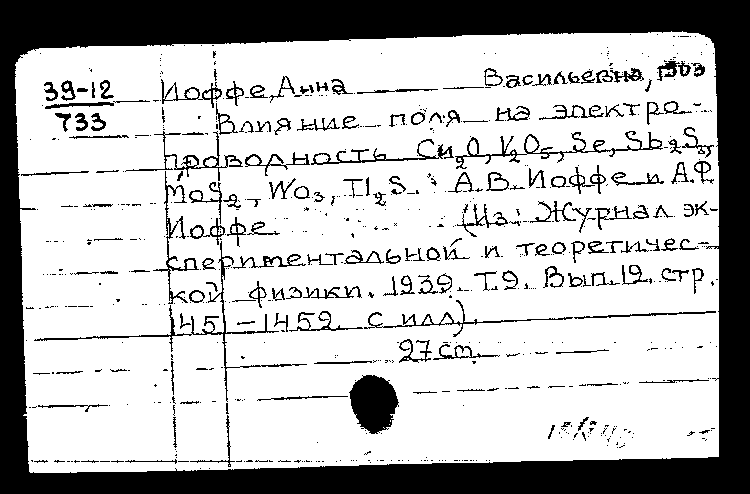 39-12 Иоффе, Анна Васильевна, 1903
733 Влияние поля на электро-
проводность Cu₂O, V₂O₅, Se, Sb₂S₃,
MoS₂, WO₃, Tl₂S. : А.В. Иоффе и А.Ф.
Иоффе. (Из: Журнал эк-
спериментальной и теоретичес-
кой физики. 1939. Т.9. Вып.12. стр.
1451-1452. с илл.).
27 cm.